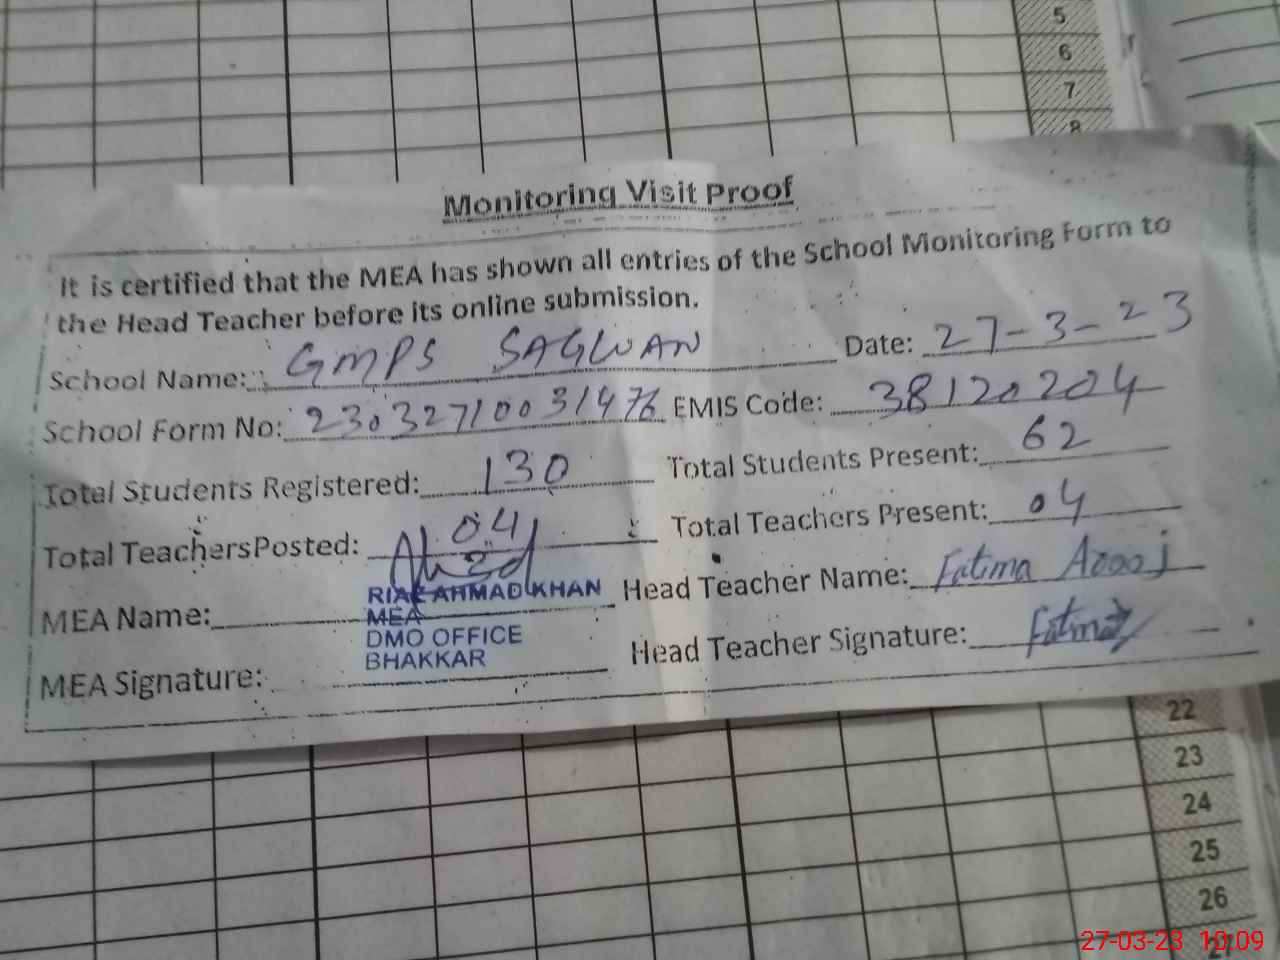 5
6
7
8
Monitoring Visit Proof
It is certified that the MEA has shown all entries of the School Monitoring Form to
the Head Teacher before its online submission.
School Name: GMPS SAGWAN Date: 27-3-23
School Form No: 23032710031476 EMIS Code: 38120204
Total Students Registered: 130 Total Students Present: 62
Total Teachers Posted: 04 Total Teachers Present: 04
MEA Name: RIAZ AHMAD KHAN Head Teacher Name: Fatima Arooj
MEA
DMO OFFICE
BHAKKAR
MEA Signature: Head Teacher Signature: Fatima
22
23
24
25
26
27
27-03-23 10:09